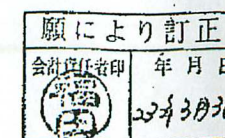 願により訂正
会計責任者印 年月日
福
23年3月3